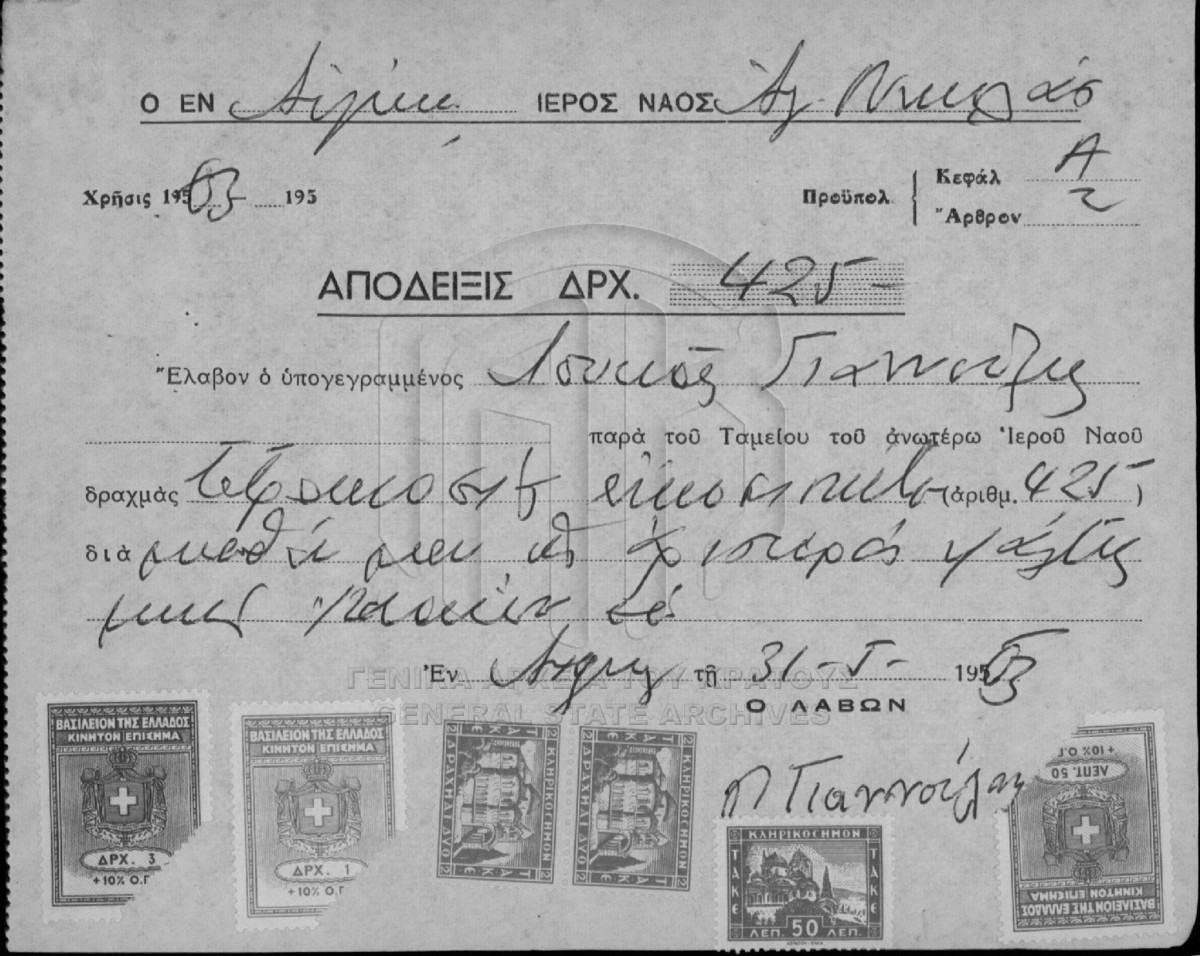 Ο ΕΝ ΙΕΡΟΣ ΝΑΟΣ Ἁγ. Νικολάου
Χρῆσις 195 63 195
Προϋπολ. Κεφάλ Α
Ἄρθρον 2
ΑΠΟΔΕΙΞΙΣ ΔΡΧ. 425-
Ἔλαβον ὁ ὑπογεγραμμένος Λουκᾶς Γιαννούλης
παρὰ τοῦ Ταμείου τοῦ ἀνωτέρω Ἱεροῦ Ναοῦ
δραχμὰς τετρακοσίας εἴκοσι πέντε (ἀριθμ. 425)
διὰ μισθό μου ὡς ἀριστερός ψάλτης
μηνός
Ἐν τῇ 31-5- 195 63
Ο ΛΑΒΩΝ
Γιαννούλης
ΓΕΝΙΚΑ ΑΡΧΕΙΑ ΤΟΥ ΚΡΑΤΟΥΣ
GENERAL STATE ARCHIVES
ΒΑΣΙΛΕΙΟΝ ΤΗΣ ΕΛΛΑΔΟΣ
ΚΙΝΗΤΟΝ ΕΠΙΣΗΜΑ
ΔΡΧ. 3
+10% Ο.Γ
ΒΑΣΙΛΕΙΟΝ ΤΗΣ ΕΛΛΑΔΟΣ
ΚΙΝΗΤΟΝ ΕΠΙΣΗΜΑ
ΔΡΧ. 1
+10% Ο.Γ
2 ΚΛΗΡΙΚΟΣΗΜΟΝ 2
ΤΑΚΕ
2 ΔΡΑΧΜΑΙ ΔΥΟ 2
2 ΚΛΗΡΙΚΟΣΗΜΟΝ 2
ΤΑΚΕ
2 ΔΡΑΧΜΑΙ ΔΥΟ 2
ΚΛΗΡΙΚΟΣΗΜΟΝ
ΤΑΚΕ
ΤΑΚΕ
ΛΕΠ. 50 ΛΕΠ.
ΒΑΣΙΛΕΙΟΝ ΤΗΣ ΕΛΛΑΔΟΣ
ΚΙΝΗΤΟΝ ΕΠΙΣΗΜΑ
ΛΕΠΤ. 50
+10% Ο.Γ